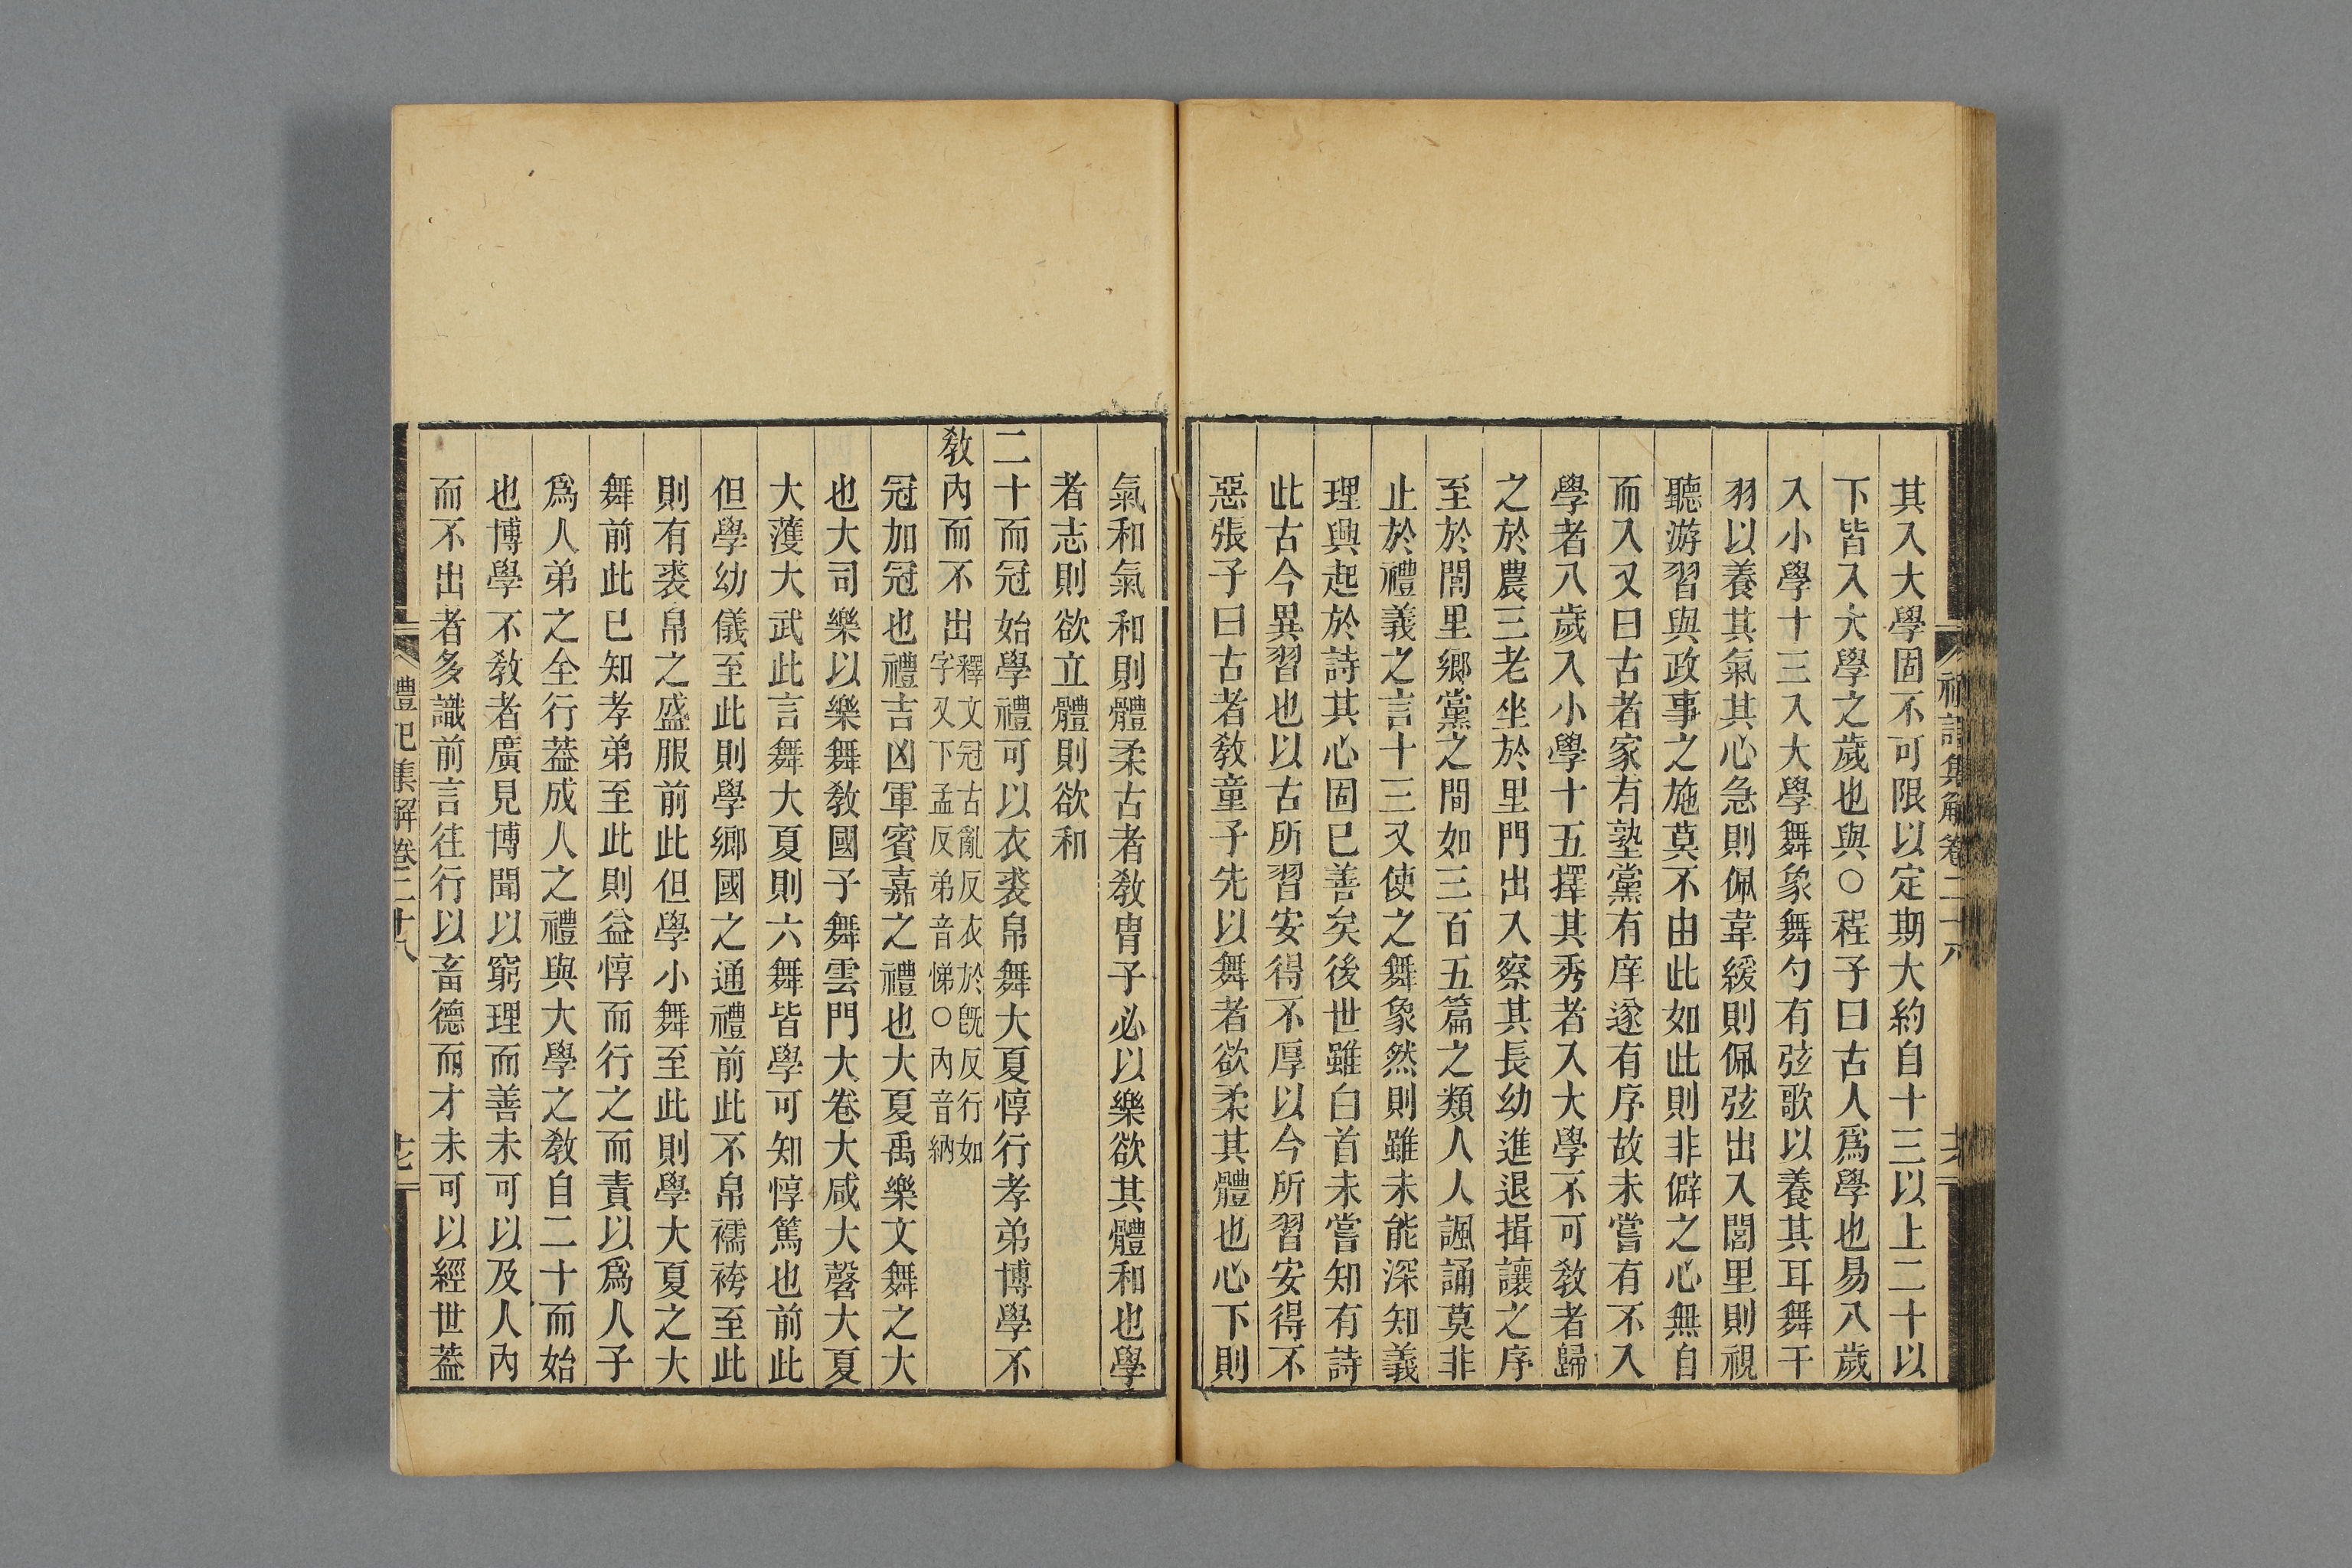 禮記集解卷二十八
其入大學固不可限以定期大約自十三以上二十以
下皆入大學之歲也與○程子曰古人爲學也易八歲
入小學十三入大學舞象舞勺有弦歌以養其耳舞干
羽以養其氣其心急則佩韋緩則佩弦出入閭里則視
聽游習與政事之施莫不由此如此則非僻之心無自
而入又曰古者家有塾黨有庠遂有序故未嘗有不入
學者八歲入小學十五擇其秀者入大學不可敎者歸
之於農三老坐於里門出入察其長幼進退揖讓之序
至於閭里鄉黨之間如三百五篇之類人人諷誦莫非
止於禮義之言十三又使之舞象然則雖未能深知義
理興起於詩其心固已善矣後世雖白首未嘗知有詩
此古今異習也以古所習安得不厚以今所習安得不
惡張子曰古者敎童子先以舞者欲柔其體也心下則
氣和氣和則體柔古者敎胄子必以樂欲其體和也學
者志則欲立體則欲和
二十而冠始學禮可以衣裘帛舞大夏惇行孝弟博學不
敎內而不出釋文冠古亂反衣於旣反行如
字又下孟反弟音悌○內音納
冠加冠也禮吉凶軍賓嘉之禮也大夏禹樂文舞之大
也大司樂以樂舞敎國子舞雲門大卷大咸大磬大夏
大濩大武此言舞大夏則六舞皆學可知惇篤也前此
但學幼儀至此則學鄉國之通禮前此不帛襦袴至此
則有裘帛之盛服前此但學小舞至此則學大夏之大
舞前此已知孝弟至此則益惇而行之而責以爲人子
爲人弟之全行蓋成人之禮與大學之敎自二十而始
也博學不敎者廣見博聞以窮理而善未可以及人內
而不出者多識前言往行以畜德而才未可以經世蓋
禮記集解卷二十八